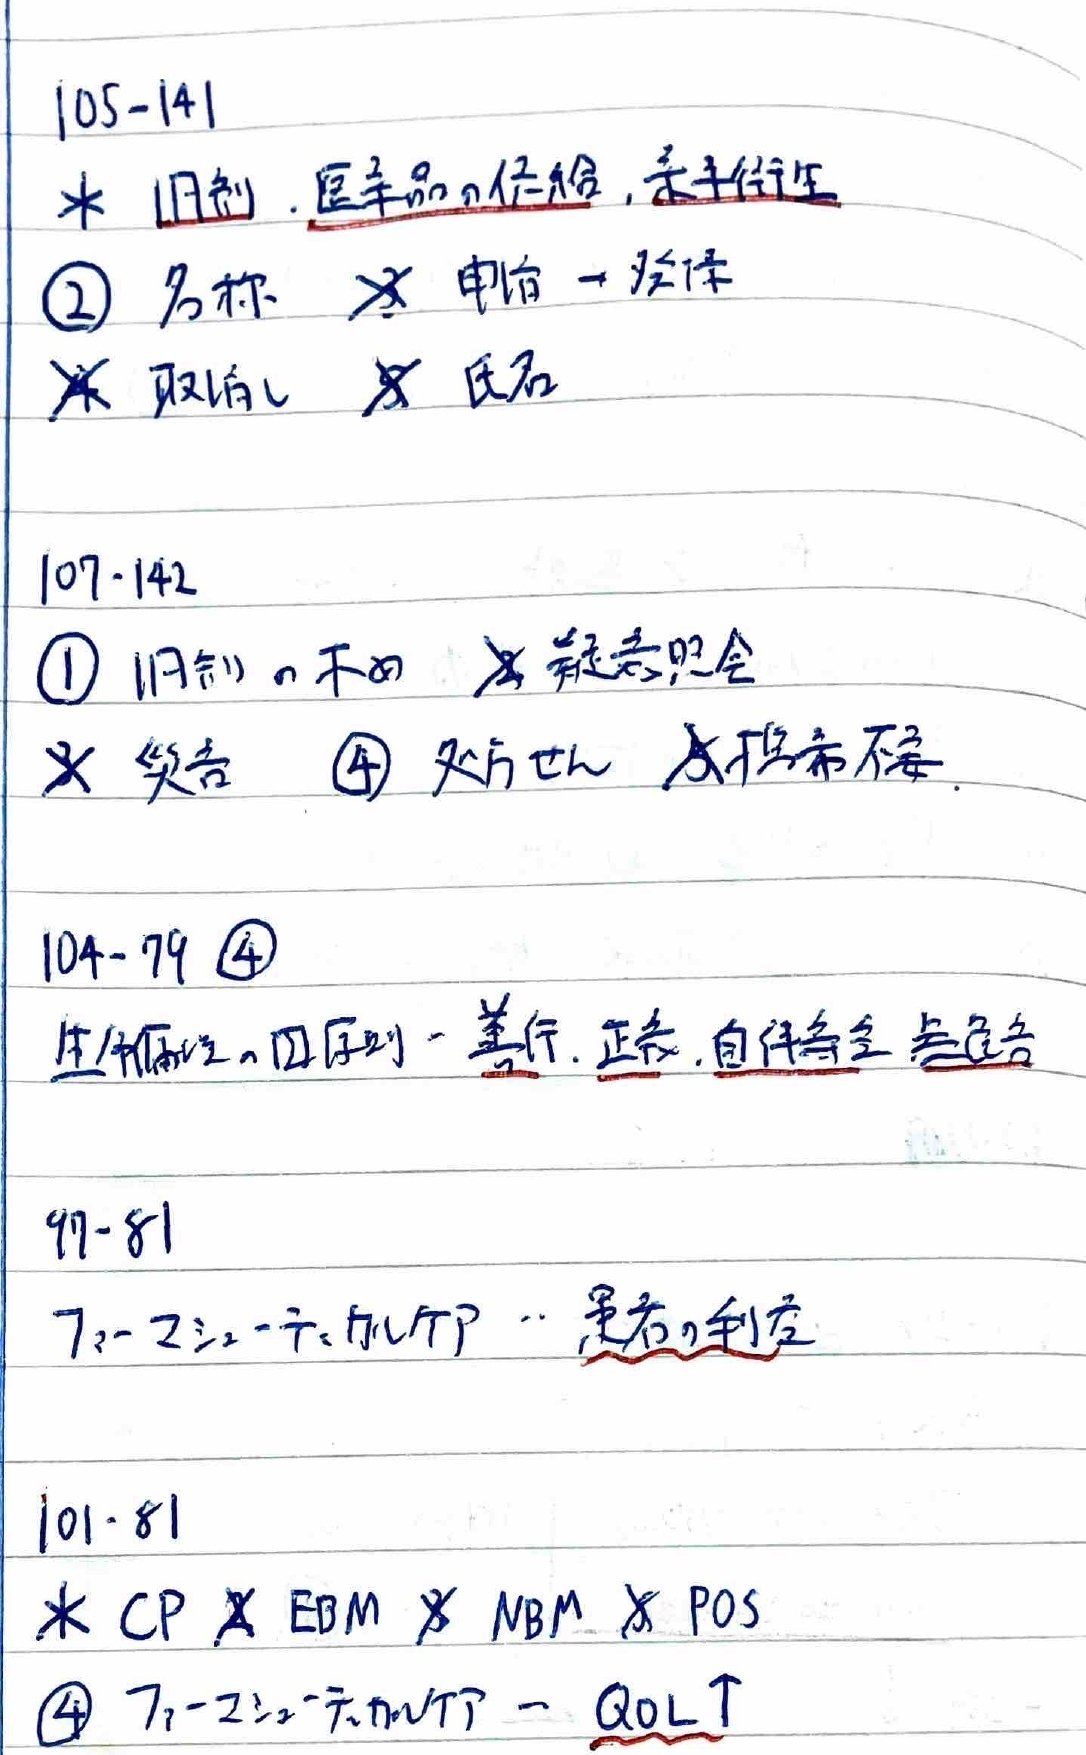 105-141
* 調剤、医薬品の供給、薬事衛生
② 名称 ✗ 申請→登録
✗ 取消し ✗ 氏名
107・142
① 調剤の求め ✗ 疑義照会
✗ ④ 処方せん ✗
104-79 ④
生命倫理の四原則 - 善行、正義、自律尊重 無危害
97-81
ファーマシューティカルケア ‥ 患者の利益
101・81
* CP ✗ EBM ✗ NBM ✗ POS
④ ファーマシューティカルケア ー QOL↑